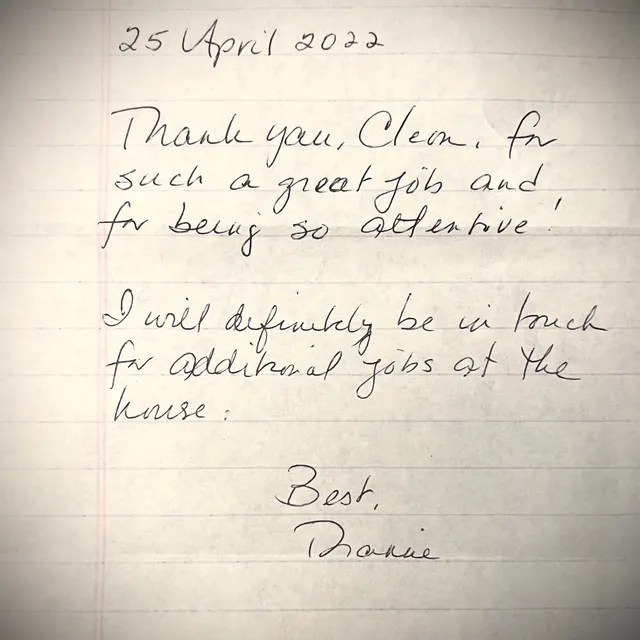 25 April 2022
Thank you, Cleon, for
such a great job and
for being so attentive!
I will definitely be in touch
for additional jobs at the
house.
Best,
Dianne